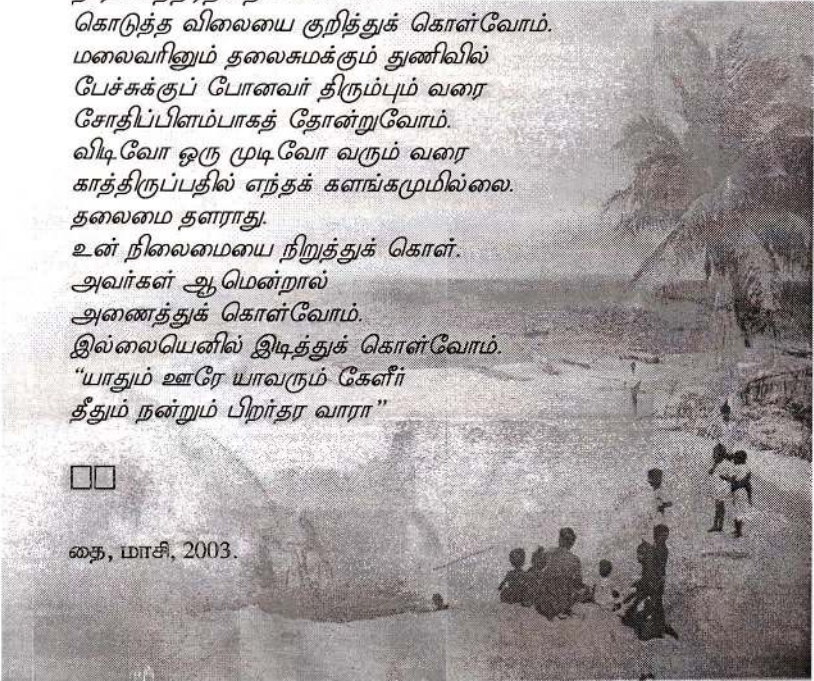 கொடுத்த விலையை குறித்துக் கொள்வோம்.
மலைவரினும் தலைசுமக்கும் துணிவில்
பேச்சுக்குப் போனவர் திரும்பும் வரை
சோதிப்பிளம்பாகத் தோன்றுவோம்.
விடிவோ ஒரு முடிவோ வரும் வரை
காத்திருப்பதில் எந்தக் களங்கமுமில்லை.
தலைமை தளராது.
உன் நிலைமையை நிறுத்துக் கொள்.
அவர்கள் ஆமென்றால்
அணைத்துக் கொள்வோம்.
இல்லையெனில் இடித்துக் கொள்வோம்.
“யாதும் ஊரே யாவரும் கேளீர்
தீதும் நன்றும் பிறர்தர வாரா”
தை, மாசி, 2003.